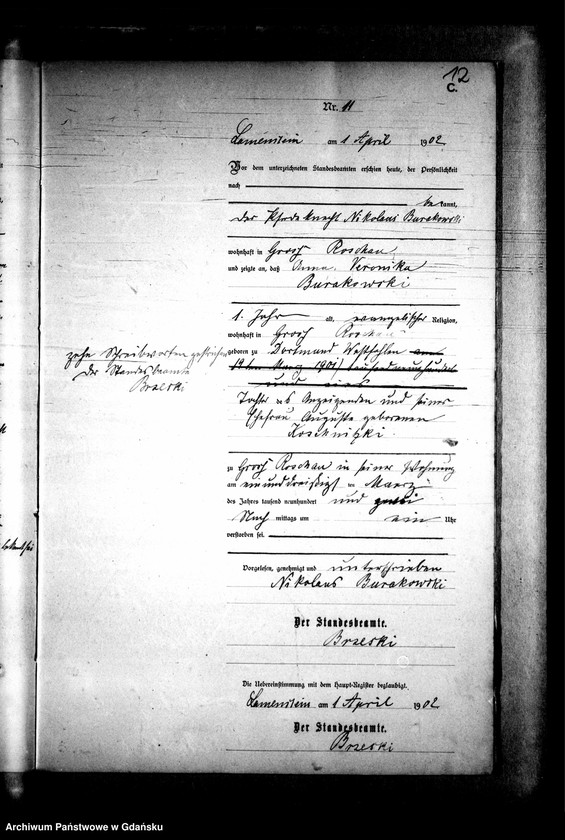 12
C.
Nr. 11
Lamenstein am 1 April 1902.
Vor dem unterzeichneten Standesbeamten erschien heute, der Persönlichkeit
nach
be kannt,
der Pferdeknecht Nikolaus Burakowski
wohnhaft in Grosz Roschau
und zeigte an, daß Anna Veronika
Burakowski
1. Jahr alt, evangelischer Religion,
wohnhaft in Grosz Roschau
geboren zu Dortmund Westfahlen am
19ten März 1901) tausend neunhundert
und eins
Tochter des Anzeigenden und seiner
Ehefrau Auguste geborenen
Koschnitzki.
zu Grosz Roschau in seiner Wohnung
am einunddreißigt ten Maerz
des Jahres tausend neunhundert und zwei
Nach mittags um ein Uhr
verstorben sei.
Vorgelesen, genehmigt und unterschrieben
Nikolaus Burakowski
Der Standesbeamte.
Brzeski
Die Uebereinstimmung mit dem Haupt-Register beglaubigt.
Lamenstein am 1 April 1902
Der Standesbeamte.
Brzeski
zehn Schreibworten gestrichen
Der Standesbeamte
Brzeski
Archiwum Państwowe w Gdańsku